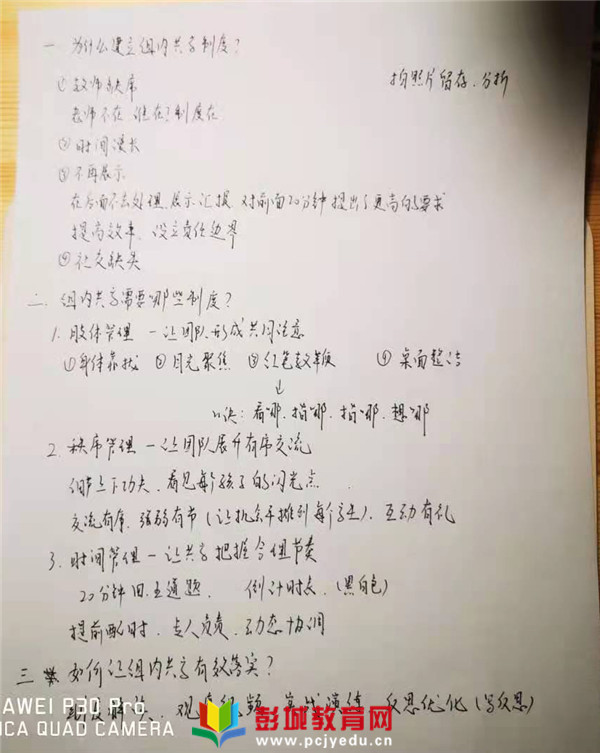 一 为什么建立组内共享制度?
拍照片留存、分析
① 教师缺席
老师不在,谁在?制度在
② 时间漫长
③ 不再展示
在后面不去处理、展示、汇报 对前面20分钟提出了更高的要求
提高效率、设立责任边界
④ 社交缺失
二、组内共享需要哪些制度?
1. 肢体管理 — 让团队形成共同注意
① 身体靠拢 ② 目光聚焦 ③ 红笔 ④ 桌面整洁
口诀: 看哪、指哪、想哪
2. 秩序管理 — 让团队展开有序交流
细节上下功夫,看见每个孩子的闪光点
交流有序、强弱有节(让机会平摊到每个学生)、互动有礼
3. 时间管理 — 让共享把握合理节奏
20分钟 主通题 倒计时长(黑白色)
提前配时、专人负责、动态协调
三 如何让组内共享有效落实?
观看视频 实战演练 反思优化(写反思)
HUAWEI P30 Pro
LEICA QUAD CAMERA
彭城教育网
www.pcjyedu.cn